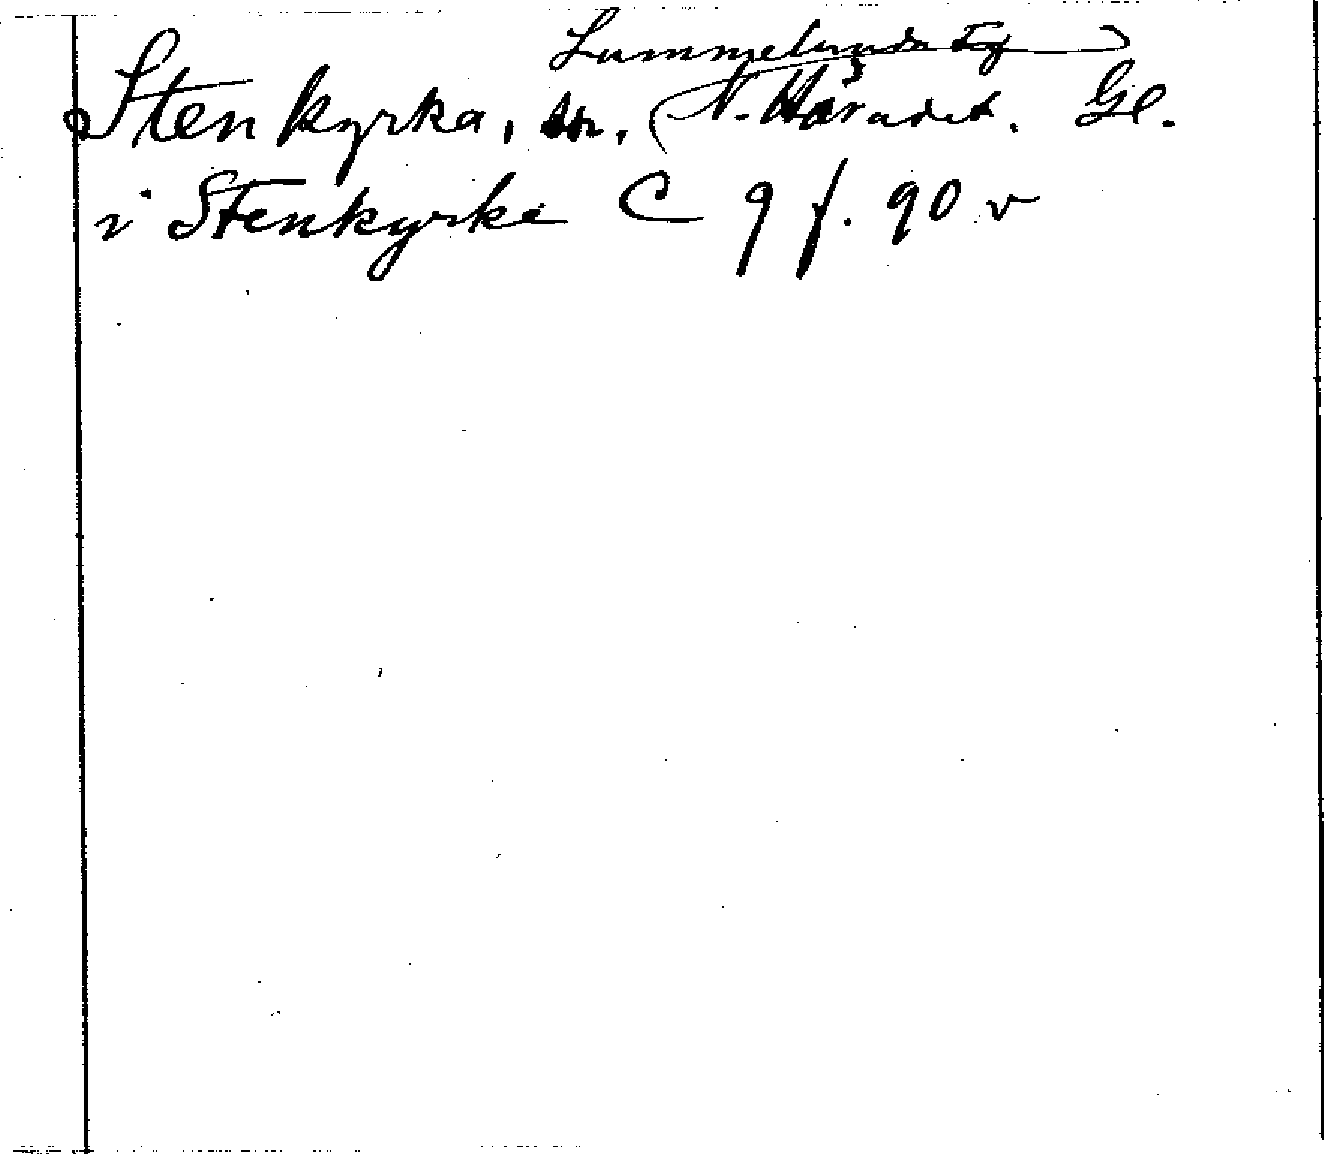 Lummelunda tg
Stenkyrka, sn, N. Häradet. Gl.
i Stenkyrke C 9 f. 90 v